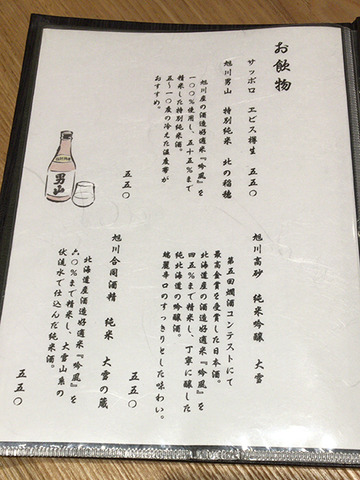 お飲物
サッポロ ヱビス樽生 五五〇
旭川男山 特別純米 北の稲穂
旭川産の酒造好適米『吟風』を
一〇〇%使用し、五十五%まで
精米した特別純米酒。
五〜一〇度の冷えた温度帯が
おすすめ。
五五〇
男山
旭川高砂 純米吟醸 大雪
第五回燗酒コンテストにて
最高金賞を受賞した日本酒。
北海道産の酒造好適米『吟風』を
四五%まで精米し、丁寧に醸した
純北海道の吟醸酒。
端麗辛口のすっきりとした味わい。
五五〇
旭川合同酒精 純米 大雪の蔵
北海道産の酒造好適米『吟風』を
六〇%まで精米し、大雪山系の
伏流水で仕込んだ純米酒。
五五〇